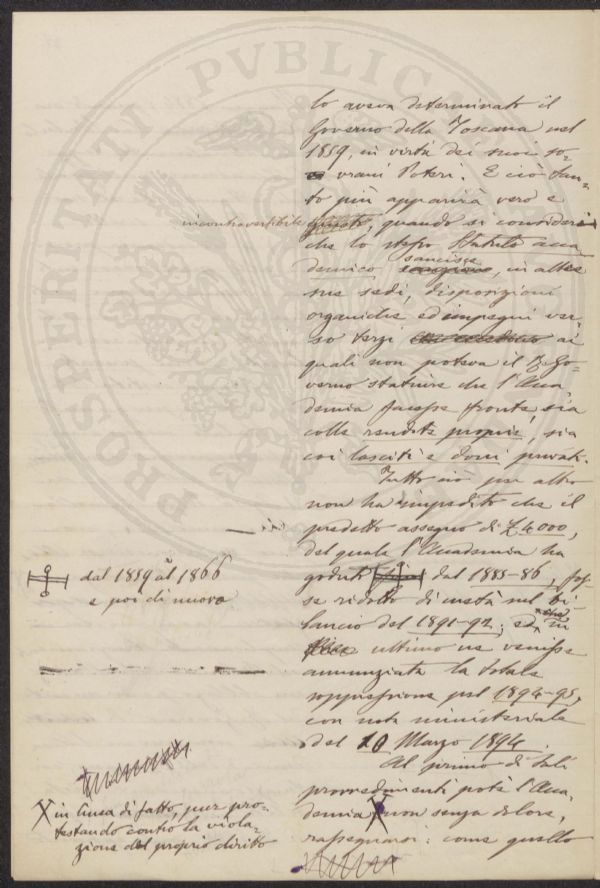 lo aveva determinato il
Governo della Toscana nel
1859, in virtù dei suoi so-
vrani Poteri. E ciò tan-
to più apparirà vero e
incontrovertibile, quando si consideri
che lo stesso Statuto acca-
demico sancisce, in altre
sue sedi, disposizioni
organiche ed impegni ver-
so terzi ai
quali non poteva il R. Go-
verno statuire che l'Acca-
demia facesse fronte, sia
colle rendite proprie, sia
coi lasciti e doni privati.
Tutto ciò per altro
non ha impedito che il
predetto assegno di £ 4000,
del quale l'Accademia ha
goduto dal 1859 al 1866
e poi di nuovo
dal 1885-86, fos-
se ridotto di metà nel bi-
lancio del 1891-92; ed che in
ultimo ne venisse
annunziata la totale
soppressione pel 1894-95,
con nota ministeriale
del 10 Marzo 1894.
Al primo di tali
provvedimenti potè l'Acca-
demia X non senza dolore,
rassegnarsi: come quello
X in linea di fatto, pur pro-
testando contro la viola-
zione del proprio diritto
PROSPERITATI PVBLICAE